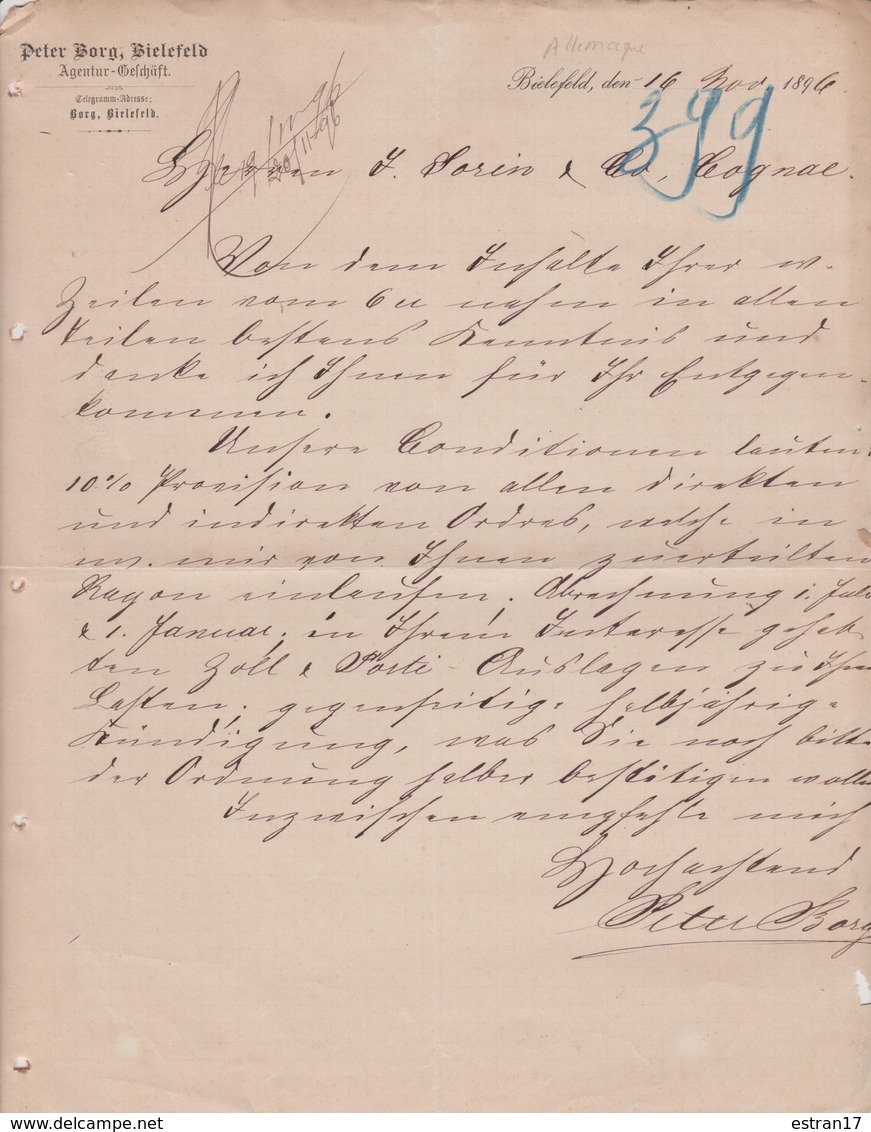 Peter Borg, Bielefeld
Agentur-Geschäft.
Telegramm-Adresse:
Borg, Bielefeld.
Allemagne
Bielefeld, den 16 Nov 1896
399
20/11 96
Herren J. Sorin & Co, Cognac.
Von dem Inhalte Ihrer w.
Zeilen vom 6 cr nahm in allen
Teilen bestens Kenntnis und
danke ich Ihnen für Ihr Entgegen-
kommen.
Unsere Conditionen lauten:
10% Provision von allen direkten
und indirekten Ordres, welche in
mir von Ihnen zuerteilten
Rayon einlaufen. Abrechnung 1. Juli
& 1. Januar, in Ihrem Interesse gehab-
ten Zoll & Porti-Auslagen zu Ihren
Lasten, gegenseitige halbjährige
Kündigung, was Sie noch bitte
der Ordnung halber bestätigen wollen
Inzwischen empfehle mich
Hochachtend
Peter Borg
estran17